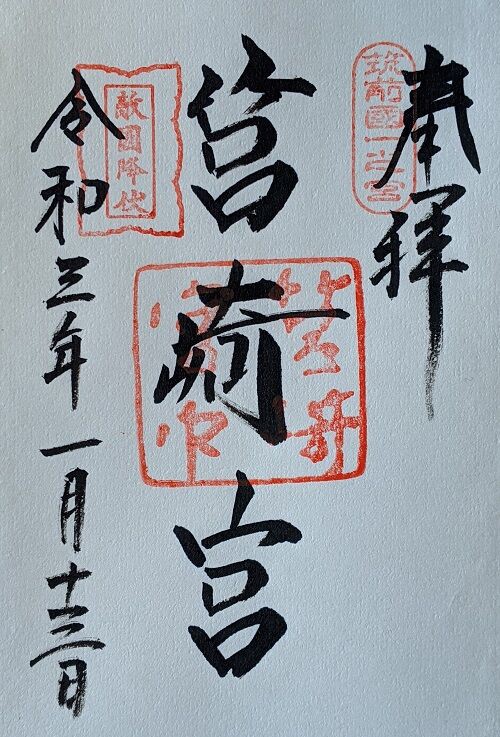 奉拝
筑前國一之宮
筥崎宮
敵國降伏
令和三年一月十三日